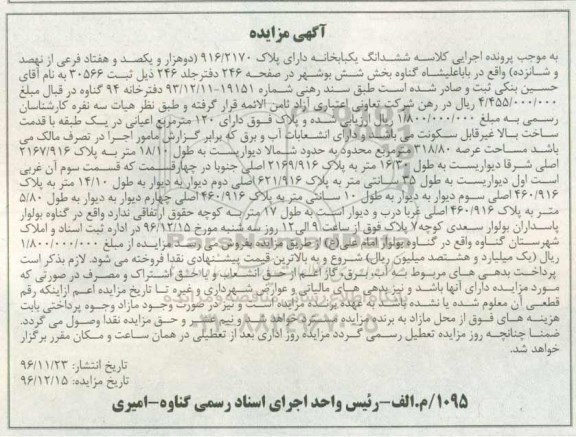 آگهی مزایده
به موجب پرونده اجرایی کلاسه ششدانگ یکبابخانه دارای پلاک ۹۱۶/۲۱۷۰ (دوهزار و یکصد و هفتاد فرعی از نهصد
و شانزده) واقع در باباعلیشاه گناوه بخش شش بوشهر در صفحه ۲۴۶ دفترجلد ۲۴۶ ذیل ثبت ۳۰۵۶۶ به نام آقای
حسین بنکی ثبت و صادر شده است طبق سند رهنی شماره ۱۹۱۵۱-۹۳/۱۲/۱۱ دفترخانه ۹۴ گناوه در قبال مبلغ
۴/۴۵۵/۰۰۰/۰۰۰ ریال در رهن شرکت تعاونی اعتباری آزاد ثامن الائمه قرار گرفته و طبق نظر هیات سه نفره کارشناسان
رسمی به مبلغ ۱/۸۰۰/۰۰۰/۰۰۰ ریال ارزیابی شده و پلاک فوق دارای ۱۲۰ مترمربع اعیانی در یک طبقه با قدمت
ساخت بالا غیرقابل سکونت می باشد و دارای انشعابات آب و برق که برابر گزارش مامور اجرا در تصرف مالک می
باشد مساحت عرصه ۳۱۸/۸۰ مترمربع محدود به حدود شمالا دیواریست به طول ۱۸/۱۰ متر به پلاک ۲۱۶۷/۹۱۶
اصلی شرقا دیواریست به طول ۱۶/۳۰ متر به پلاک ۲۱۶۹/۹۱۶ اصلی جنوبا در چهارقسمت که قسمت سوم آن غربی
است اول دیواریست به طول ۳۵ سانتی متر به پلاک ۶۲۱/۹۱۶ اصلی دوم دیوار به دیوار به طول ۱۴/۱۰ متر به پلاک
۴۶۰/۹۱۶ اصلی سوم دیوار به دیوار به طول ۱۰ سانتی متر به پلاک ۴۶۰/۹۱۶ اصلی چهارم دیوار به دیوار به طول ۵/۸۰
متر به پلاک ۴۶۰/۹۱۶ اصلی غربا درب و دیوار است به طول ۱۷ متر به کوچه حقوق ارتفاقی ندارد واقع در گناوه بولوار
پاسداران بولوار سعدی کوچه۷ پلاک فوق از ساعت ۹ الی۱۲ روز سه شنبه مورخ ۹۶/۱۲/۱۵ در اداره ثبت اسناد و املاک
شهرستان گناوه واقع در گناوه بولوار امام خمینی(ره) از طریق مزایده بفروش می رسد مزایده از مبلغ ۱/۸۰۰/۰۰۰/۰۰۰
ریال (یک میلیارد و هشتصد میلیون ریال) شروع و به بالاترین قیمت پیشنهادی نقدا فروخته می شود. لازم بذکر است
پرداخت بدهی های مربوط به آب، برق، گاز اعم از حق انشعاب و یا حق اشتراک و مصرف در صورتی که
مورد مزایده دارای آنها باشد و نیز بدهی های مالیاتی و عوارض شهرداری و غیره تا تاریخ مزایده اعم ازاینکه رقم
قطعی آن معلوم شده یا نشده باشد به عهده برنده مزایده است و نیز در صورت وجود مازاد وجوه پرداختی بابت
هزینه های فوق از محل مازاد به برنده مزایده مسترد خواهد شد و نیم عشر و حق مزایده نقدا وصول می گردد.
ضمنا چنانچه روز مزایده تعطیل رسمی گردد مزایده روز اداری بعد از تعطیلی در همان ساعت و مکان مقرر برگزار
خواهد شد.
تاریخ انتشار: ۹۶/۱۱/۲۳
تاریخ مزایده: ۹۶/۱۲/۱۵
۱۰۹۵/م.الف-رئیس واحد اجرای اسناد رسمی گناوه-امیری